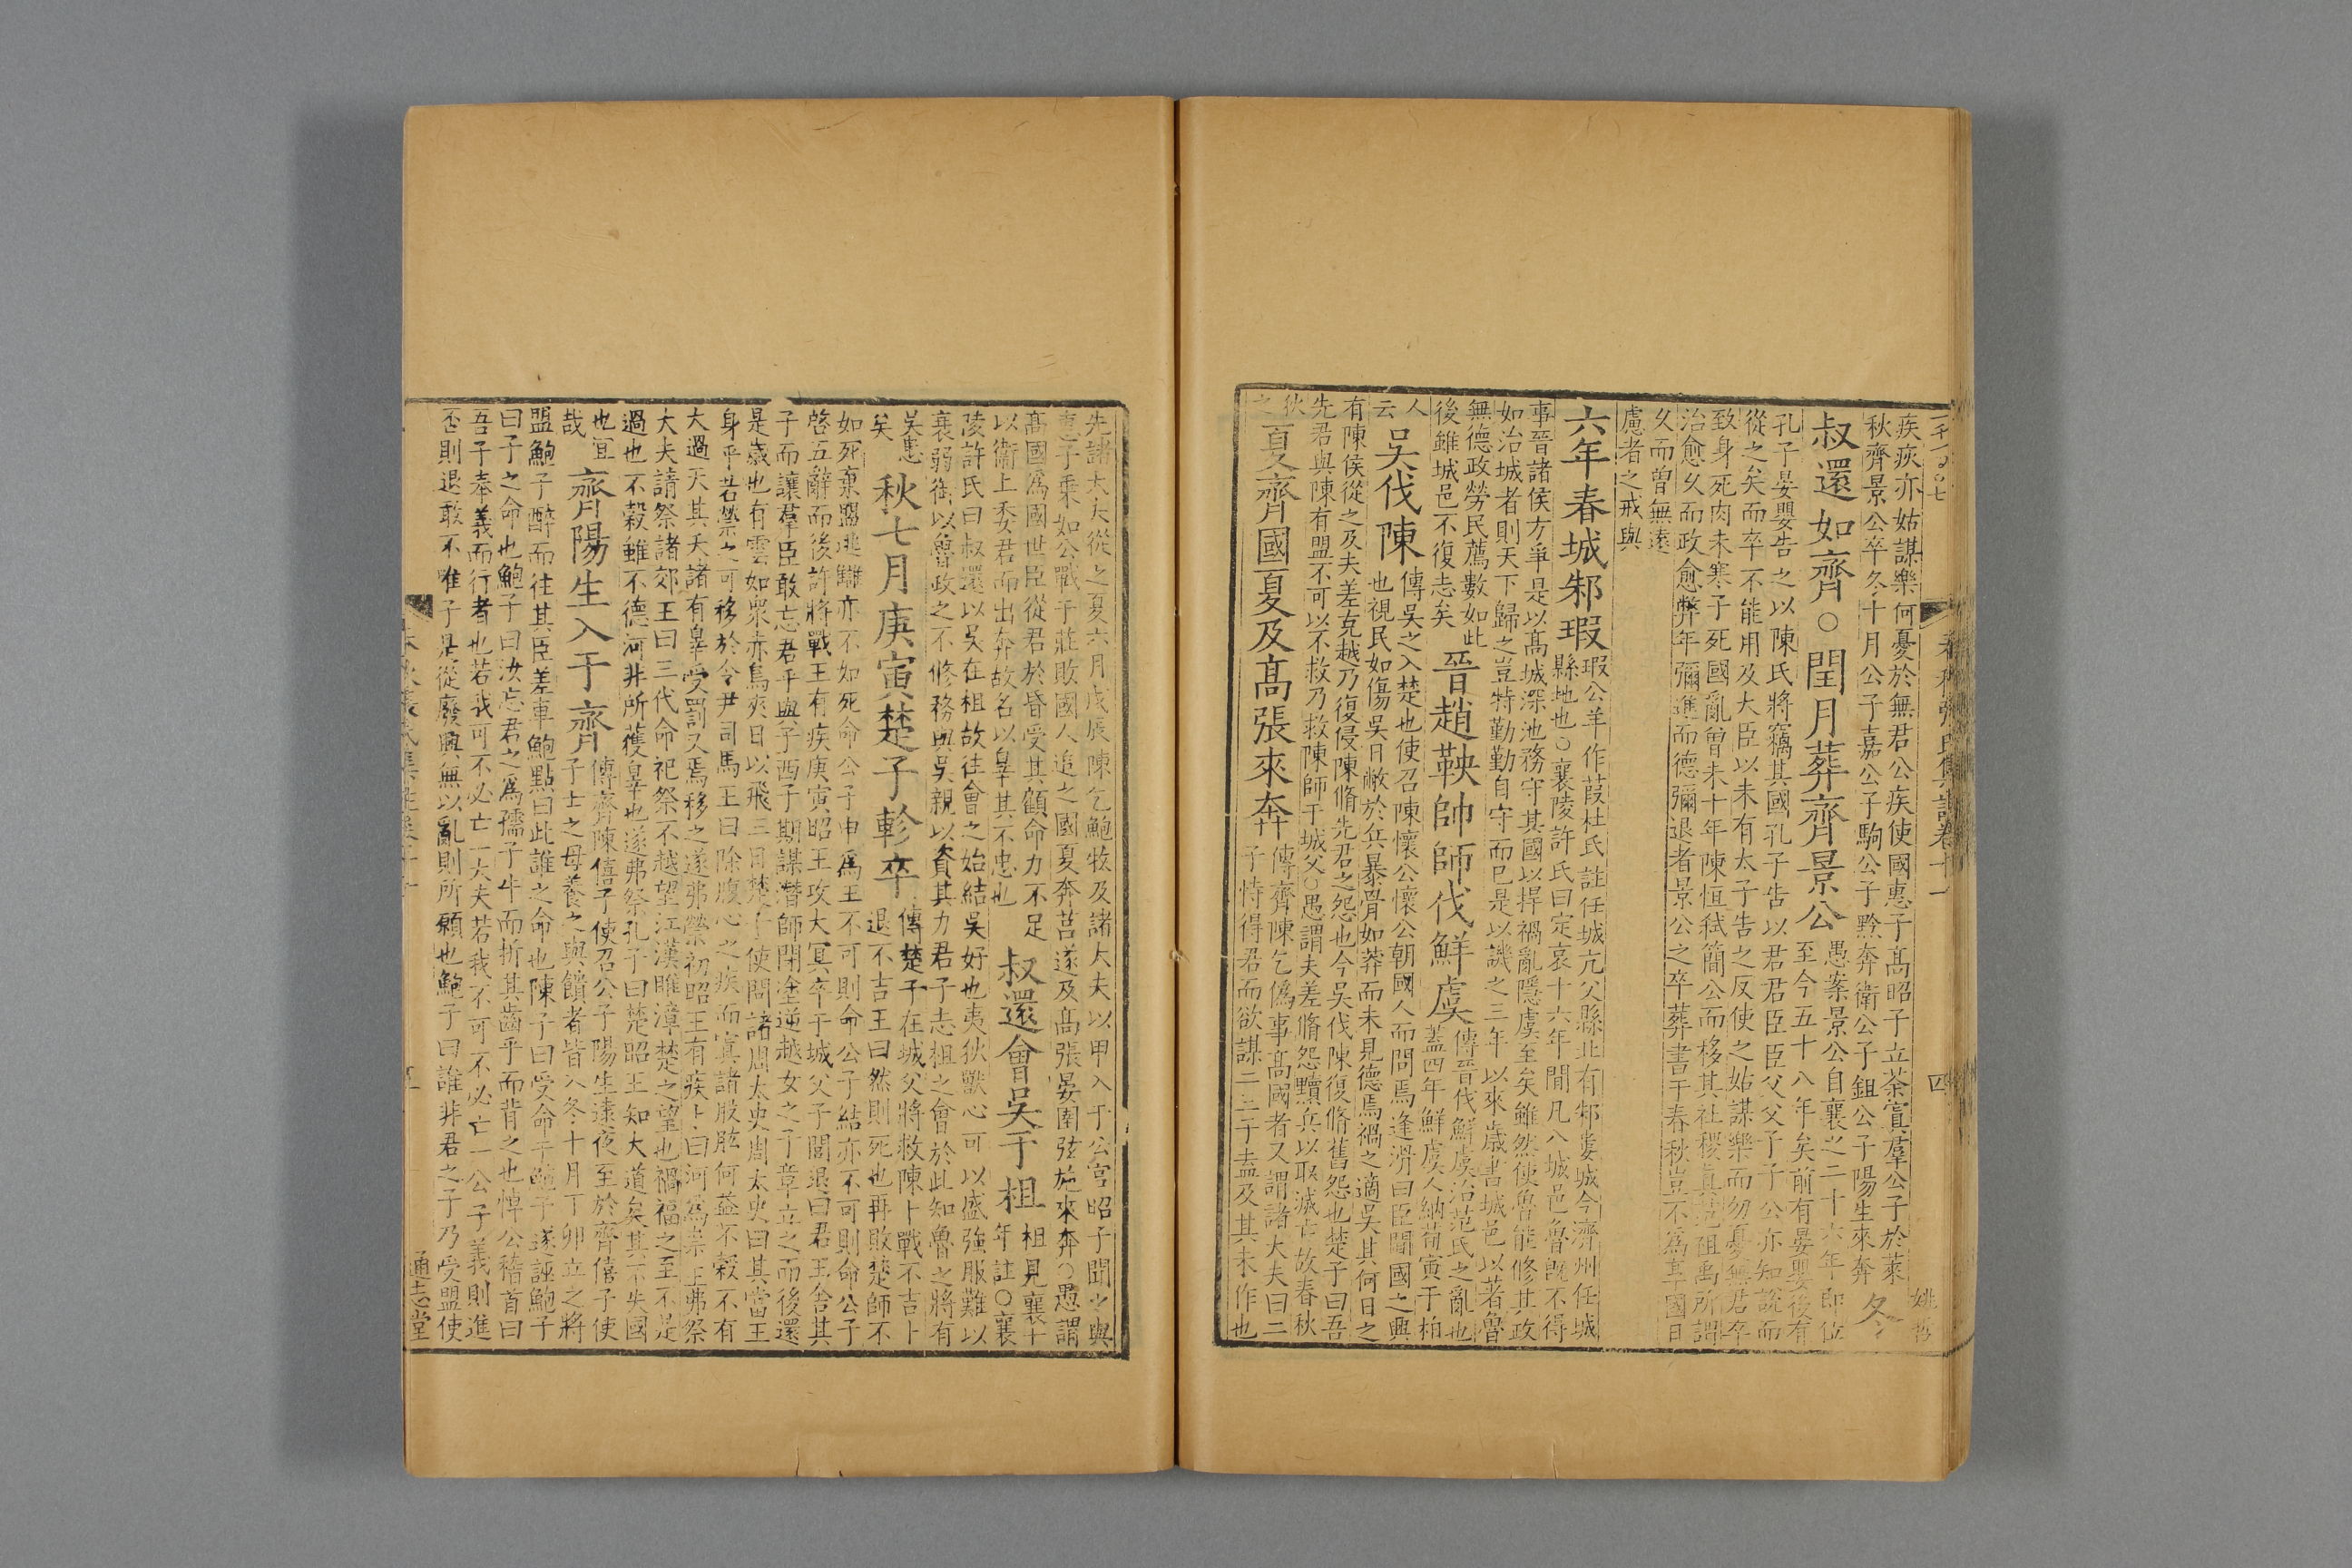 春秋張氏集註卷十一
四
姚哲
疾疢亦姑謀樂何憂於無君公疾使國惠子髙昭子立荼寘羣公子於萊
秋齊景公卒冬十月公子嘉公子駒公子黔奔衛公子鉏公子陽生來奔
冬
叔還如齊○閏月葬齊景公
愚案景公自襄之二十六年即位
至今五十八年矣前有晏嬰後有
孔子晏嬰告之以陳氏將竊其國孔子告以君君臣臣父父子子公亦知說而
從之矣而卒不能用及大臣以未有太子告之反使之姑謀樂而勿憂無君卒
致身死肉未寒子死國亂曾未十年陳恒弑簡公而移其社稷眞范祖禹所謂
治愈乆而政愈弊年彌進而德彌退者景公之卒葬書于春秋豈不爲享國日
乆而曾無遠
慮者之戒與
六年春城邾瑕
瑕公羊作葭杜氏註任城亢父縣北有邾婁城今濟州任城
縣地也○襄陵許氏曰定哀十六年間凡八城邑魯旣不得
事晉諸侯方爭是以髙城深池務守其國以捍禍亂隱虞至矣雖然使魯能修其政
如治城者則天下歸之豈特勤勤自守而已是以譏之三年以來歲書城邑以著魯
無德政勞民薦數如此
後雖城邑不復志矣
晉趙鞅帥師伐鮮虞
傳晉伐鮮虞治范氏之亂也
蓋四年鮮虞人納荀寅于柏
人
云
吳伐陳
傳吳之入楚也使召陳懷公懷公朝國人而問焉逢滑曰臣聞國之興
也視民如傷吳日敝於兵暴骨如莽而未見德焉禍之適吳其何日之
有陳侯從之及夫差克越乃復侵陳脩先君之怨也今吳伐陳復脩舊怨也楚子曰吾
先君與陳有盟不可以不救乃救陳師于城父○愚謂夫差脩怨黷兵以取滅亡故春秋
狄
之
夏齊國夏及髙張來奔
傳齊陳乞僞事髙國者又謂諸大夫曰二
子恃得君而欲謀二三子盍及其未作也
先諸大夫從之夏六月戊辰陳乞鮑牧及諸大夫以甲入于公宮昭子聞之與
惠子乗如公戰于莊敗國人追之國夏奔莒遂及髙張晏圉弦施來奔○愚謂
髙國爲國世臣從君於昏受其顧命力不足
以衞上委君而出奔故名以辠其不忠也
叔還會吳于柤
柤見襄十
年註○襄
陵許氏曰叔還以吳在柤故往會之始結吳好也夷狄獸心可以盛強服難以
衰弱御以魯政之不修務與吳親以資其力君子志柤之會於此知魯之將有
吳患
矣
秋七月庚寅楚子軫卒
傳楚子在城父將救陳卜戰不吉卜
退不吉王曰然則死也再敗楚師不
如死棄盟逃讎亦不如死命公子申爲王不可則命公子結亦不可則命公子
啓五辭而後許將戰王有疾庚寅昭王攻大冥卒于城父子閭退曰君王舍其
子而讓羣臣敢忘君乎與子西子期謀潛師閉塗逆越女之子章立之而後還
是歲也有雲如衆赤鳥夾日以飛三日楚子使問諸周太史周太史曰其當王
身乎若禜之可移於令尹司馬王曰除腹心之疾而寘諸股肱何益不穀不有
大過天其夭諸有辠受罰又焉移之遂弗禜初昭王有疾卜曰河爲祟王弗祭
大夫請祭諸郊王曰三代命祀祭不越望江漢睢漳楚之望也禍福之至不是
過也不穀雖不德河非所獲辠也遂弗祭孔子曰楚昭王知大道矣其不失國
也宜
哉
齊陽生入于齊
傳齊陳僖子使召公子陽生逮夜至於齊僖子使
子士之母養之與饋者皆入冬十月丁卯立之將
盟鮑子醉而往其臣差車鮑點曰此誰之命也陳子曰受命于鮑子遂誣鮑子
曰子之命也鮑子曰汝忘君之爲孺子牛而折其齒乎而背之也悼公稽首曰
吾子奉義而行者也若我可不必亡一大夫若我不可不必亡一公子義則進
否則退敢不唯子是從廢興無以亂則所願也鮑子曰誰非君之子乃受盟使
通志堂